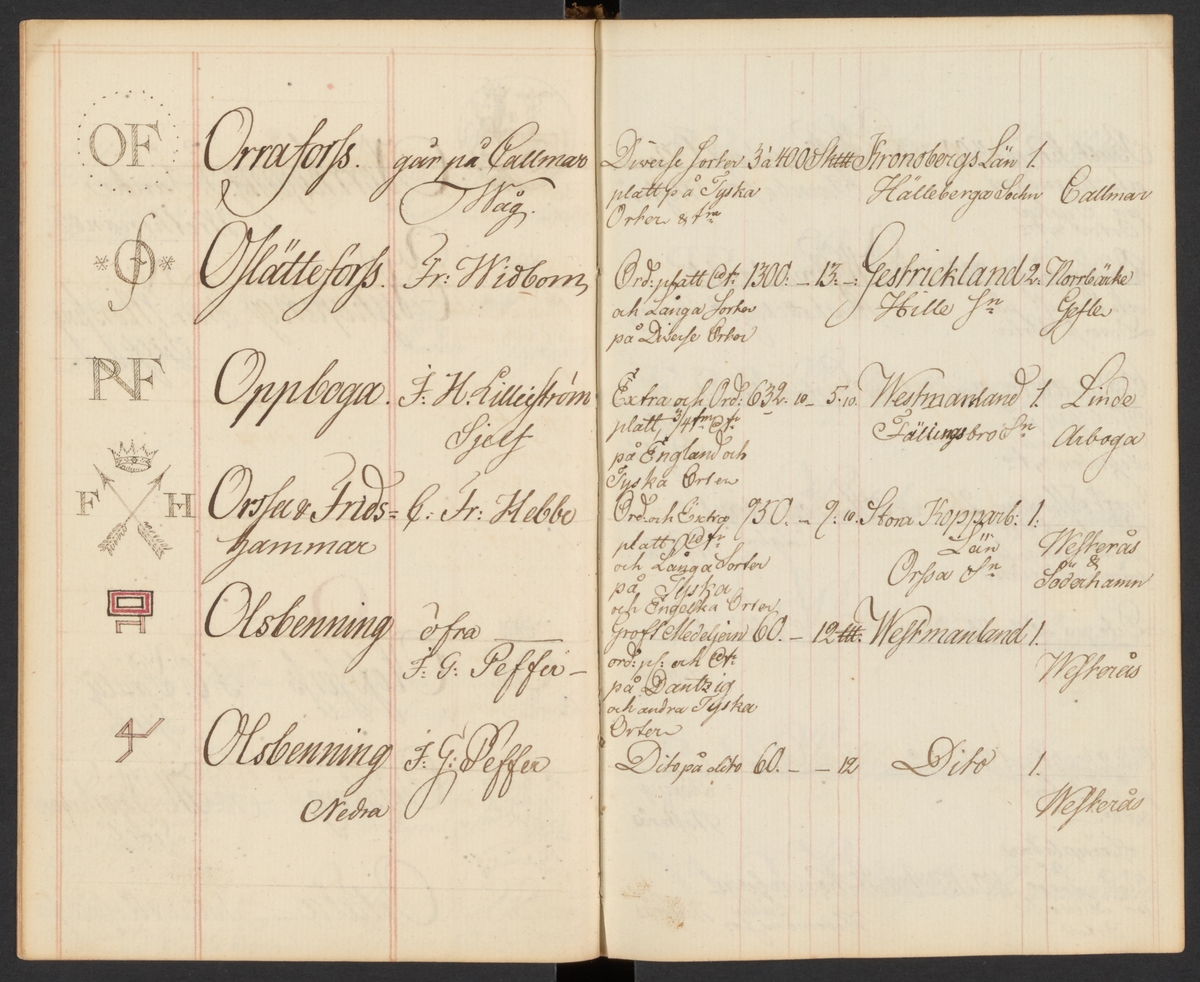 OF Orraforss. går på Callmar Diverse Sorter 3 à 400 Sk℔ Kronobergs Län 1.
Wåg. platt på Tyska Hälleberga Sochn Callmar
Orter &
Oslätteforss. Fr: Widbom Ord: platt 1300. — 13. — Gestrickland 2: Norrbärke
och Långa Sorter Hille Sn Gefle
på Diverse Orter
PNF Oppboga. F. H. Lilliejström Extra och Ord: 632. 10 — 5. 10. Westmanland 1. Linde
Sjelf platt 3/4tm Fällingsbro Sn Arboga
på England och
Tyska Orter
F H Orssa & Frids= C: Fr: Hebbe Ord och Extra 950. — 9: 10. Stora Kopparb: 1:
hammar platt Län Westerås
och Långa Sorter Orssa Sn &
på Tyska Söderhamn
och Engelska Orter
Olsbenning öfra Groft Medeljern 60. — 12 Westmanland 1.
F: G: Peffer — ord: pl: och Westerås
på Dantzig
och andra Tyska
Orter
Olsbenning F: G: Peffer Dito på dito 60. — — 12 Dito 1.
Nedra Westerås